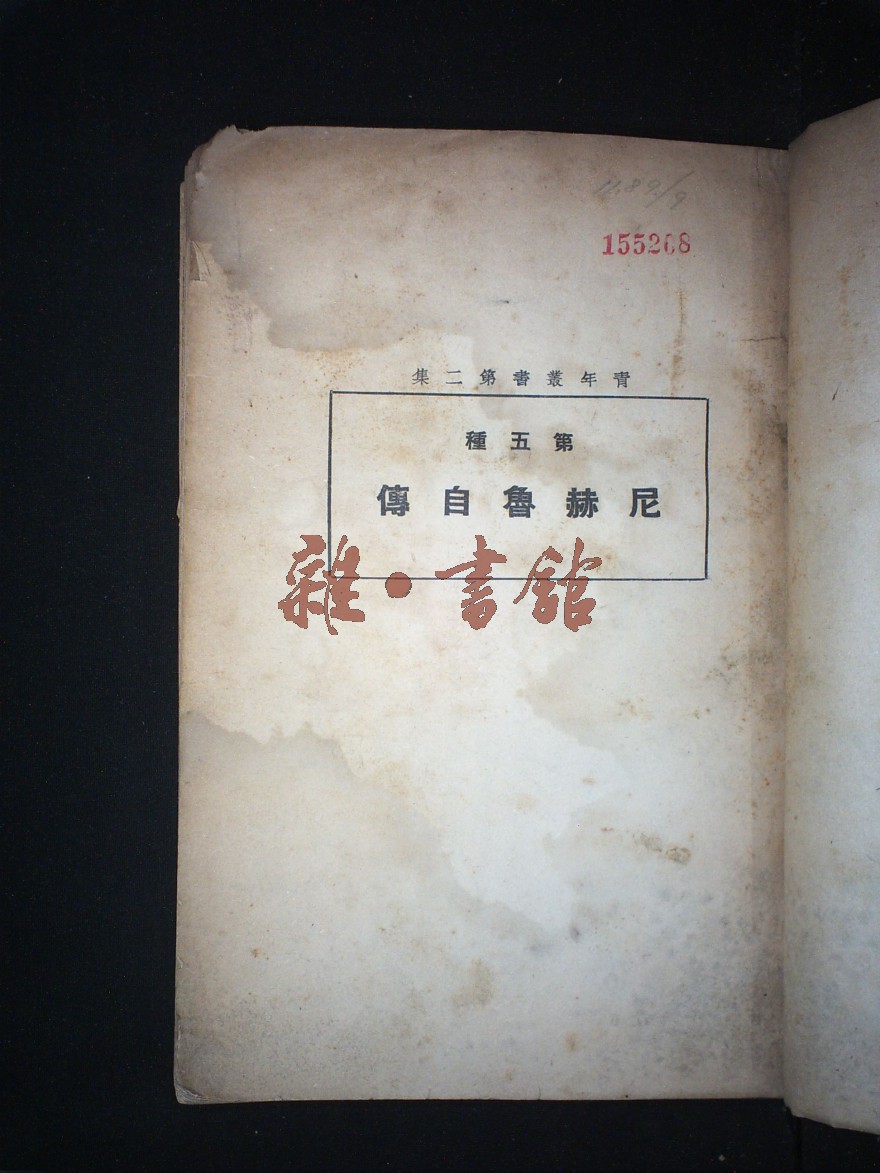 155208
青年叢書第二集
第五種
尼赫魯自傳
雜·書館